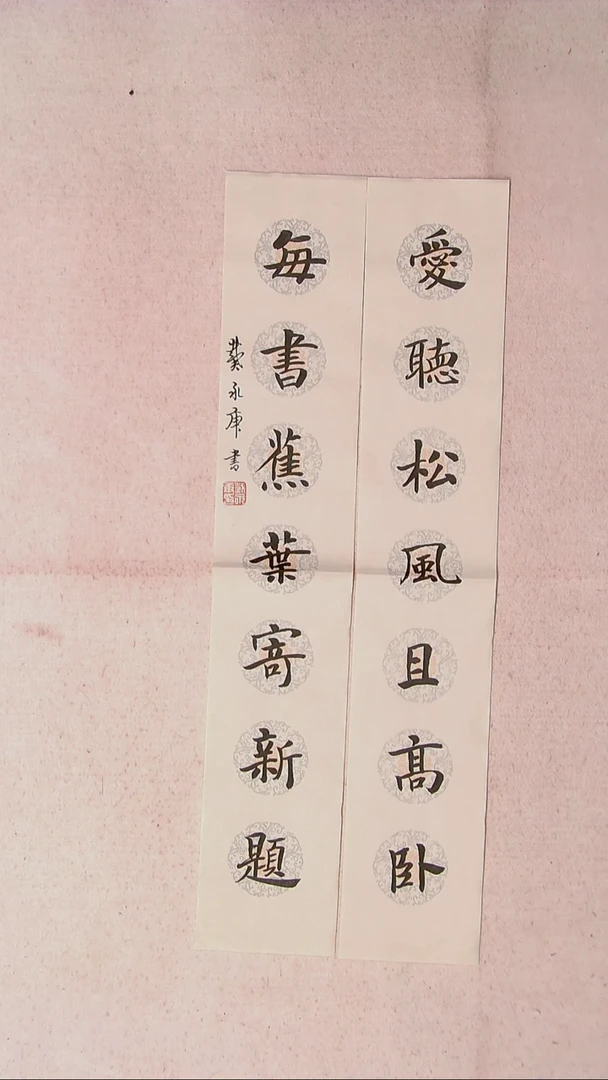 愛聽松風且高卧
每書蕉葉寄新題
龔永庚書